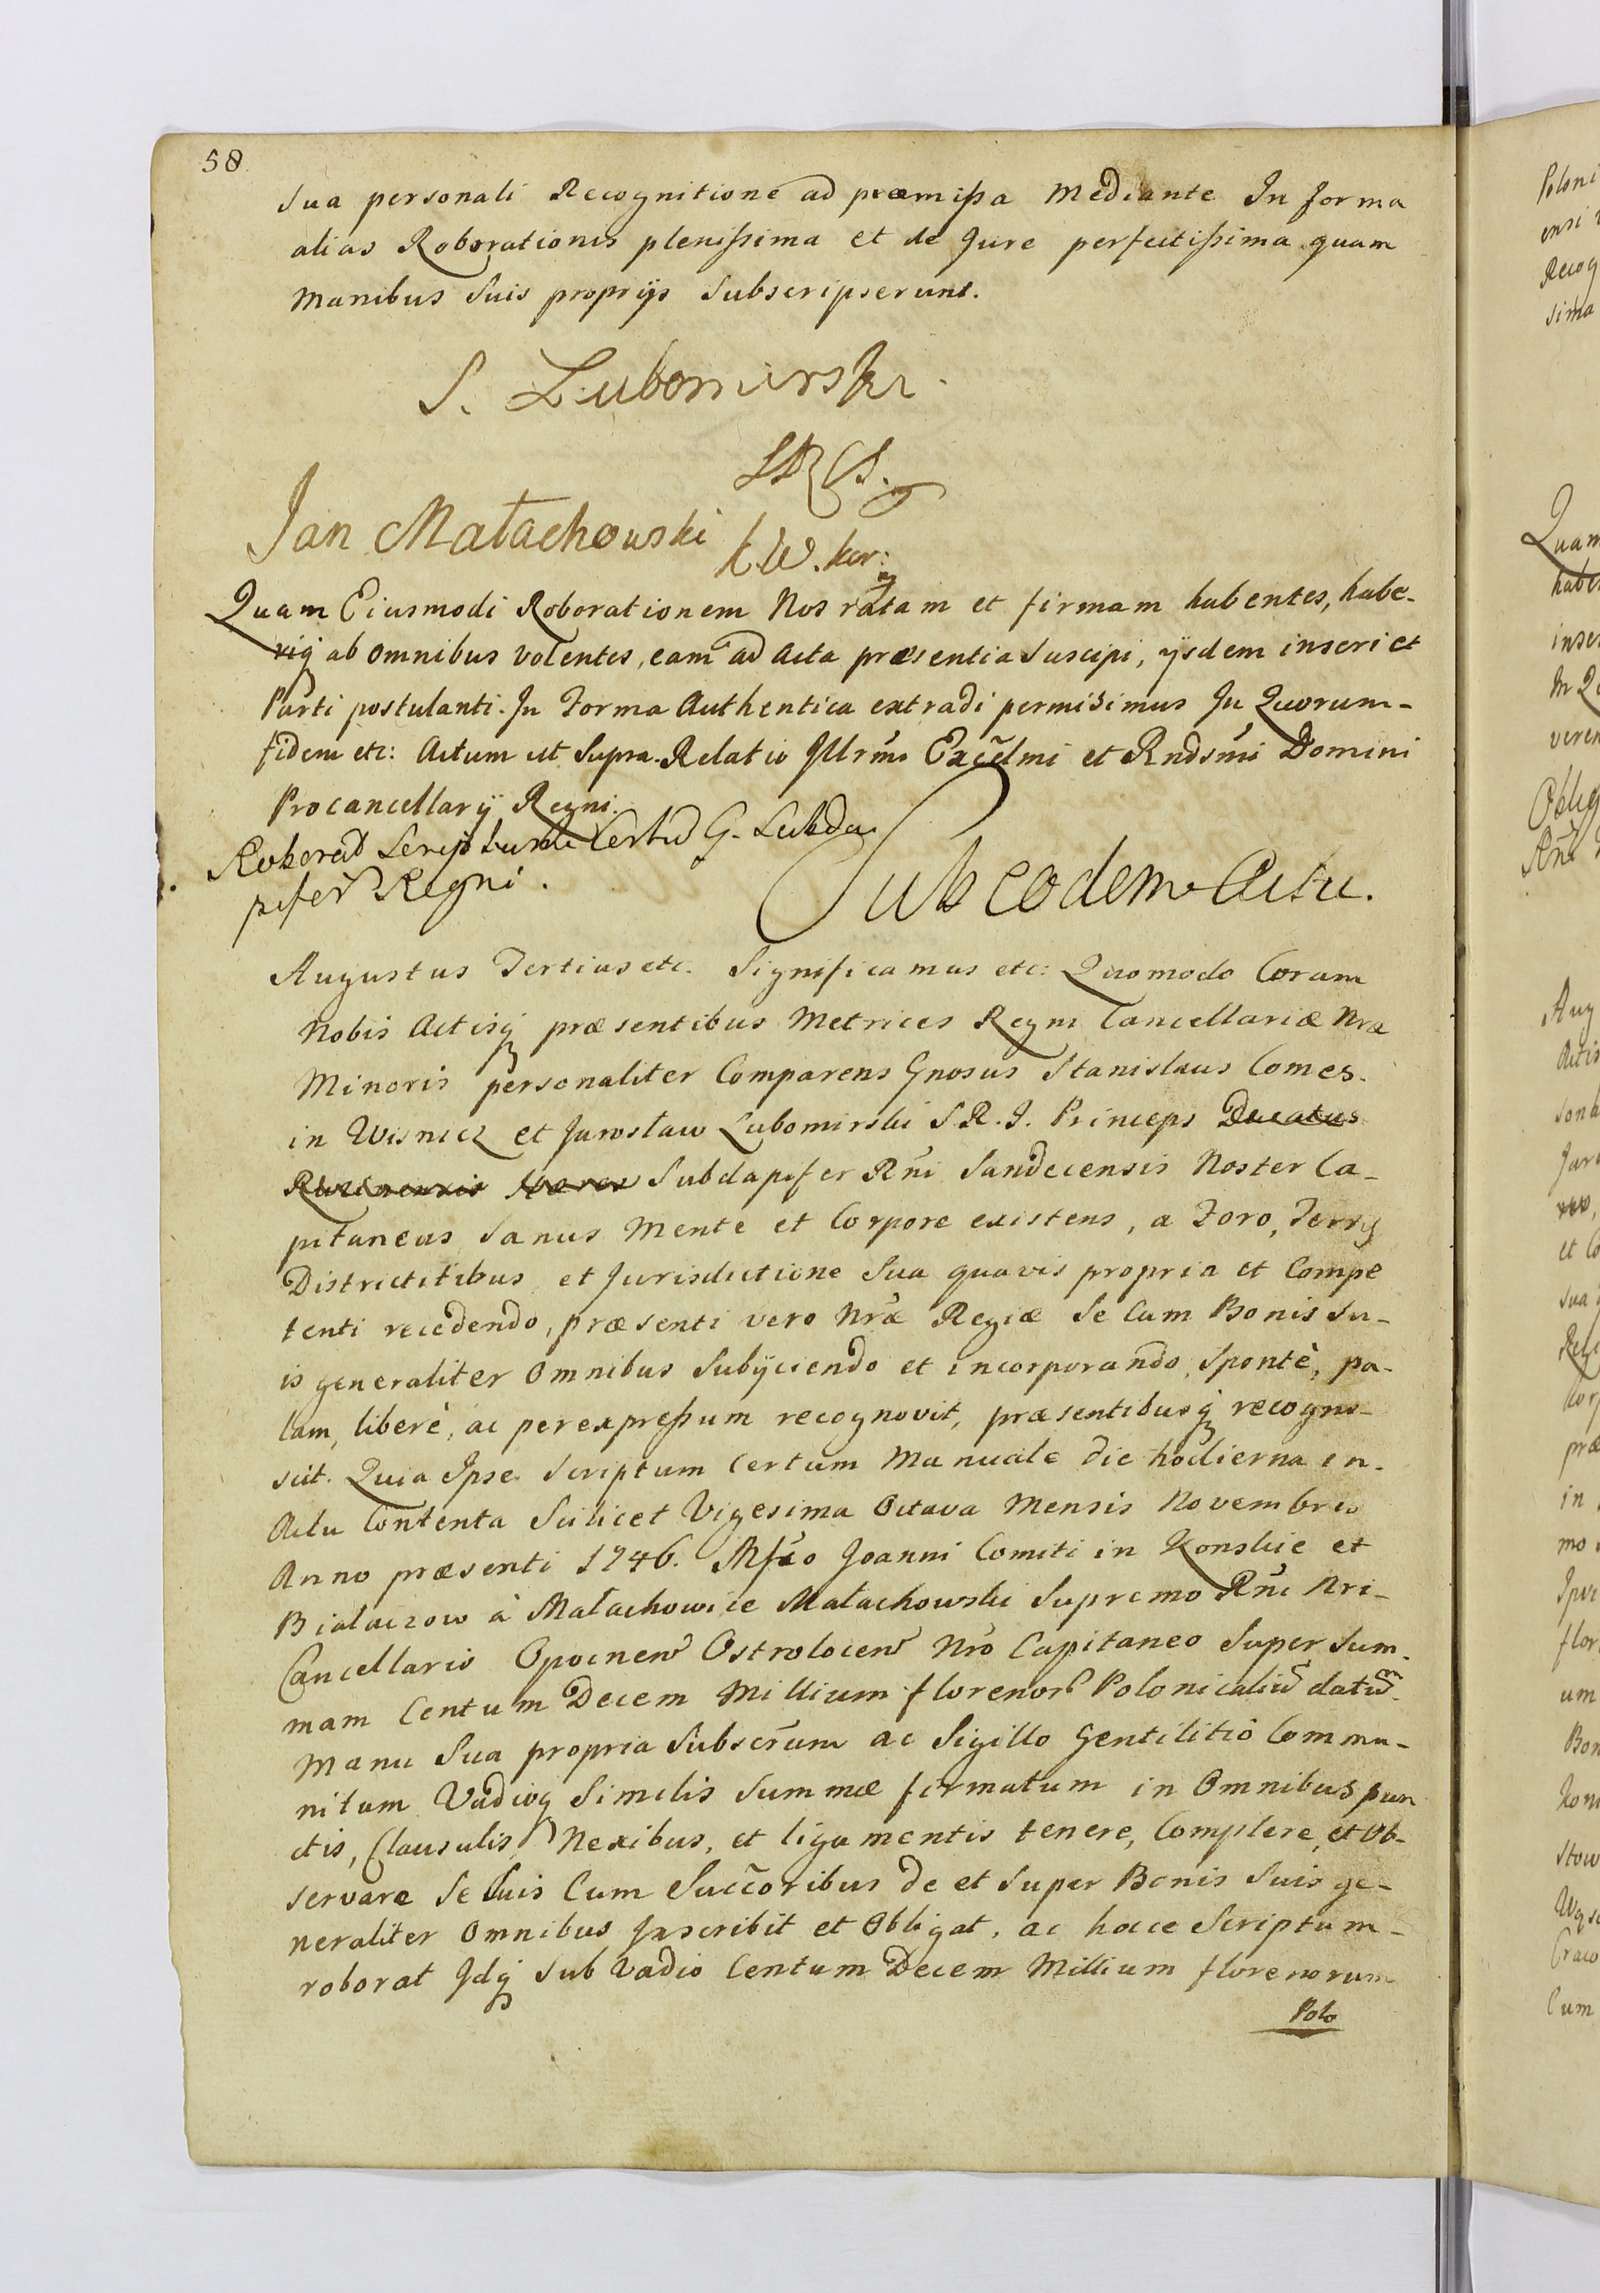 58
sua personali Recognitione ad præmissa Mediante In forma
alias Roborationis plenissima et de Jure perfectissima quam
Manibus Suis proprijs Subscripserunt.
S. Lubomirski
Jan Małachowski K.W. kor:
Quam Eiusmodi Roborationem Nos ratam et firmam habentes, habe-
riq ab omnibus volentes, eam ad Acta præsentia Suscipi, ijsdem inseri et
Parti postulanti In Forma Authentica extradi permisimus In Quorum-
fidem etc: Actum ut Supra. Relatio Illrmi Excelmi et Rndsmi Domini
Procancellarij Regni.
Roborat Scriptum Certum G. Subda
pifer Regni.
Sub eodem Actu.
Augustus Tertius etc. Significamus etc: Quomodo Coram
Nobis Actisq præsentibus Metrices Regni Cancellariæ Nræ
Minoris personaliter Comparens Gnosus Stanislaus Comes.
in Wisnicz et Jarosław Lubomirski S.R.I. Princeps Ducatus
Subdapifer Rni Sandecensis Noster Ca-
pitaneus Sanus Mente et Corpore existens, a Foro, Terrs
Districtitibus et Jurisdictione Sua quavis propria et Compe
tenti recedendo, præsenti vero Nræ Regiæ Se Cum Bonis Su-
is generaliter Omnibus Subijciendo et incorporando, Spontè, pa-
lam, liberè, ac per expressum recognovit, præsentibusq recogno-
scit. Quia Ipse Scriptum Certum Manuale die hodierna in-
Actu Contenta Scilicet Vigesima Octava Mensis Novembris
Anno præsenti 1746. Mfco Joanni Comiti in Konskie et
Białaczow à Małachowice Małachowski Supremo Rni Nri-
Cancellario Opocnen Ostrolocen Nro Capitaneo Super Sum-
mam Centum Decem Millium florenor Polonicaliu datum
Manu Sua propria Subscrum ac Sigillo Gentilitio Commu-
nitum Vadioq Similis Summæ firmatum in Omnibus pun
ctis, Clausulis, Nexibus, et ligamentis tenere, Complere, et Ob-
servare Se Suis Cum Succoribus de et Super Bonis Suis ge-
neraliter Omnibus Inscribit et Obligat, ac hocce Scriptum-
roborat Idq Sub Vadio Centum Decem Millium florenorum
Polo